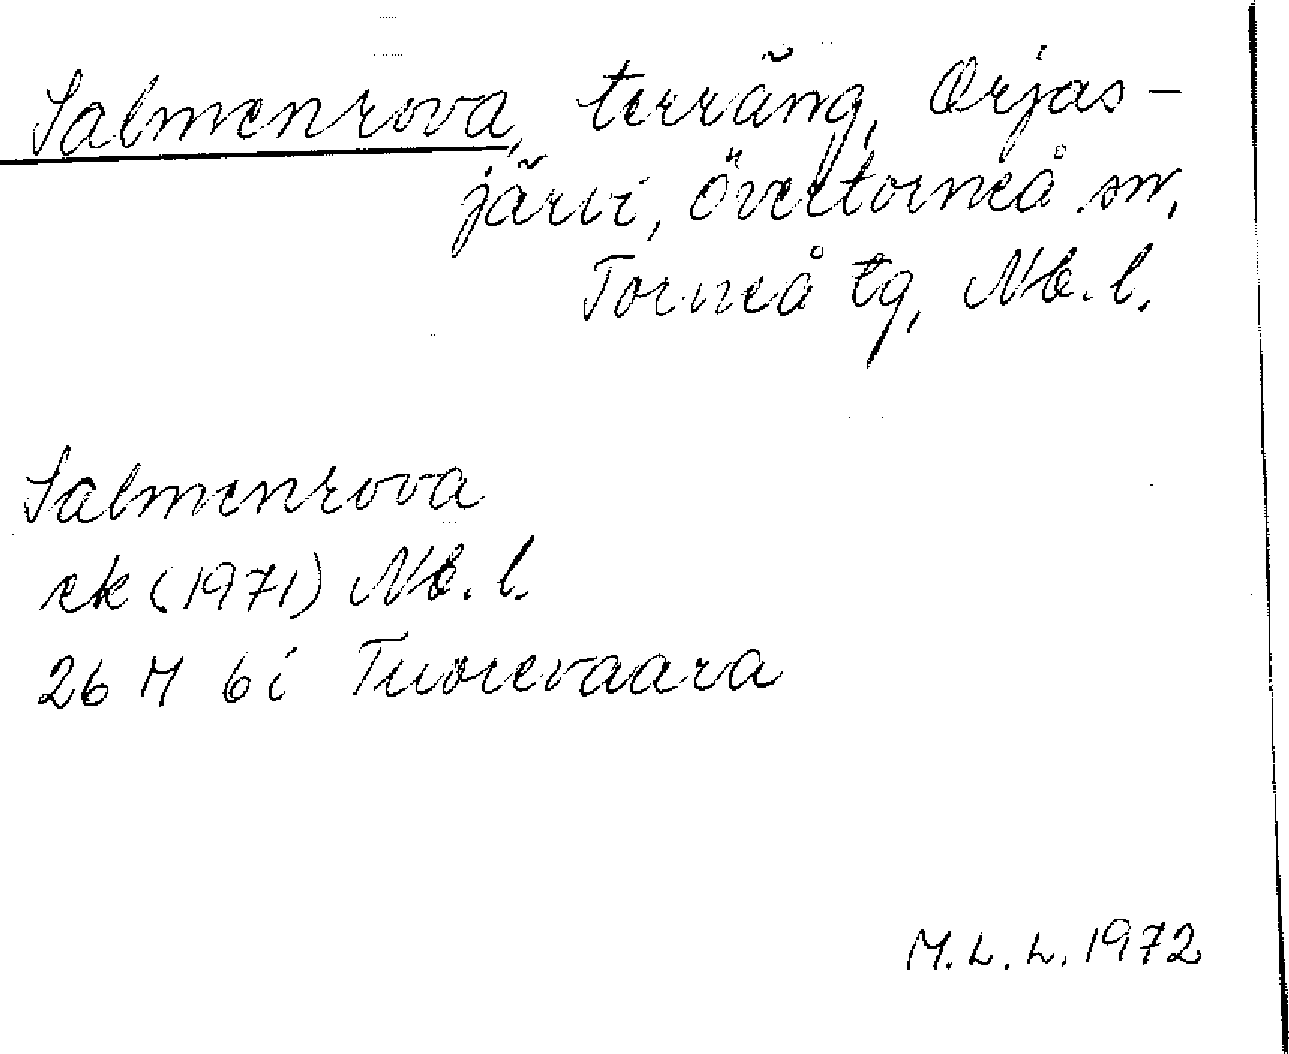 Salmenrova, terräng, Orjas-
järvi, Övertorneå sn,
Torneå tg, Nb. l.
Salmenrova
ek (1971) Nb. l.
26 M 6 i Tuorevaara
M. L. L. 1972